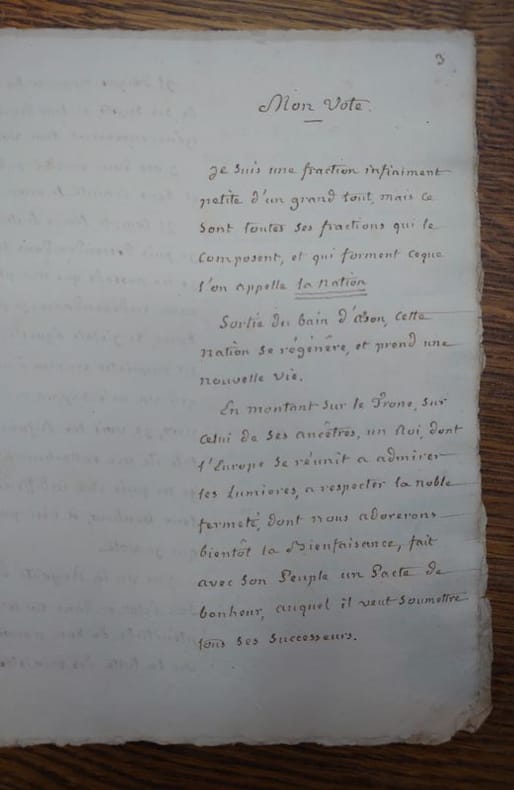 3
Mon Vote.
Je suis une fraction infiniment
petite d'un grand tout, mais ce
sont toutes ses fractions qui le
composent, et qui forment ceque
l'on appelle la nation
Sortie du bain d'Eson, cette
nation se régénère, et prend une
nouvelle vie.
En montant sur le Trone, sur
celui de ses ancêtres, un Roi, dont
l'Europe se réunit a admirer
les Lumieres, a respecter la noble
fermeté, dont nous adorerons
bientôt la Bienfaisance, fait
avec son Peuple un Pacte de
bonheur, auquel il veut soumettre
tous ses successeurs.